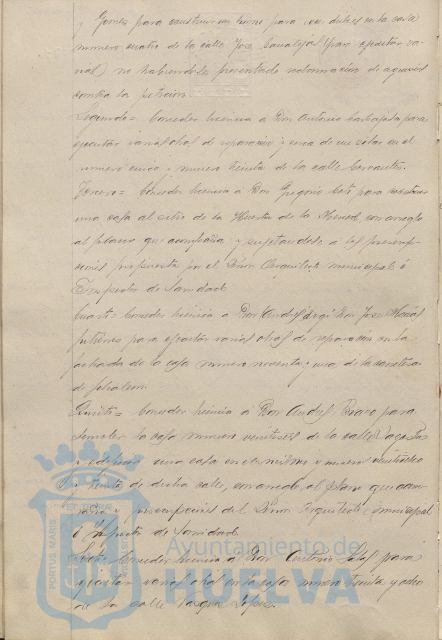 y Gomez para construir un horno para dulces en la casa
numero cuatro de la calle José Canalejas (para ejecutar
no habiendose presentado reclamacion de
contra la peticion
Segundo = Conceder licencia á Don Antonio para
ejecutar varias obras de reparacion y cerca de un solar en el
numero cinco y numero treinta de la calle Cervantes.
Tercero = Conceder licencia á Don Gregorio para construir
una casa al sitio de la Huerta de la Merced, con arreglo
al plano que acompaña y sujetandose á las prescrip-
ciones propuestas por el Señor Arquitecto municipal é
Inspector de Sanidad.
Cuarto = Conceder licencia á Don José
para ejecutar varias obras de reparacion en la
fachada de la casa numero noventa y una de la carretera
de
Quinto = Conceder licencia á Don Andrés Bravo para
demoler la casa numero veintiseis de la calle
y edificar una casa en el mismo y numero
y treinta de dicha calle, con arreglo al plano que acom-
paña y prescripciones del Señor Arquitecto municipal
é Inspector de Sanidad.
Sexto = Conceder licencia á Don Antonio para
ejecutar varias obras en la casa numero treinta y ocho
de la calle Vazquez Lopez.
PORTUS MARIS
Ayuntamiento de
HUELVA